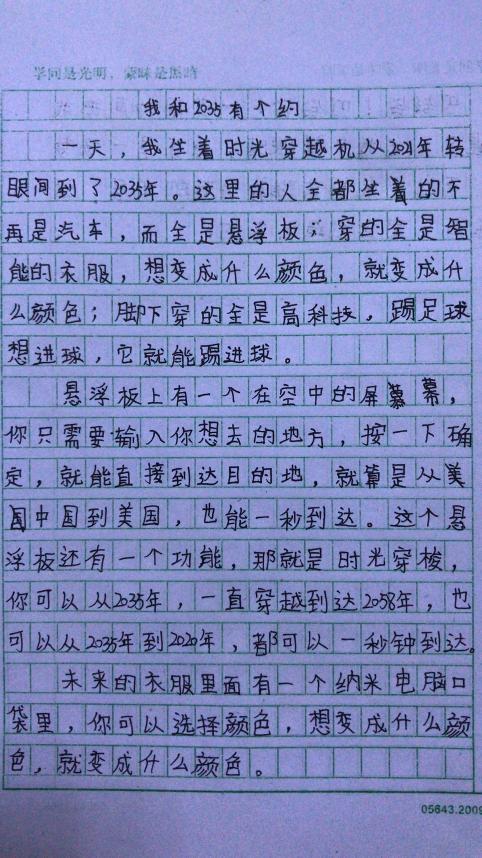 学问是光明，蒙昧是黑暗
我和2035有个约
一天，我坐着时光穿越机从2021年转
眼间到了2035年。这里的人全都坐着的不
再是汽车，而全是悬浮板；穿的全是智
能的衣服，想变成什么颜色，就变成什
么颜色；脚下穿的全是高科技，踢足球
想进球，它就能踢进球。
悬浮板上有一个在空中的屏幕，
你只需要输入你想去的地方，按一下确
定，就能直接到达目的地，就算是从美
国中国到美国，也能一秒到达。这个悬
浮板还有一个功能，那就是时光穿梭，
你可以从2035年，一直穿越到达2058年，也
可以从2035年到2020年，都可以一秒钟到达。
未来的衣服里面有一个纳米电脑口
袋里，你可以选择颜色，想变成什么颜
色，就变成什么颜色。
05643.2009